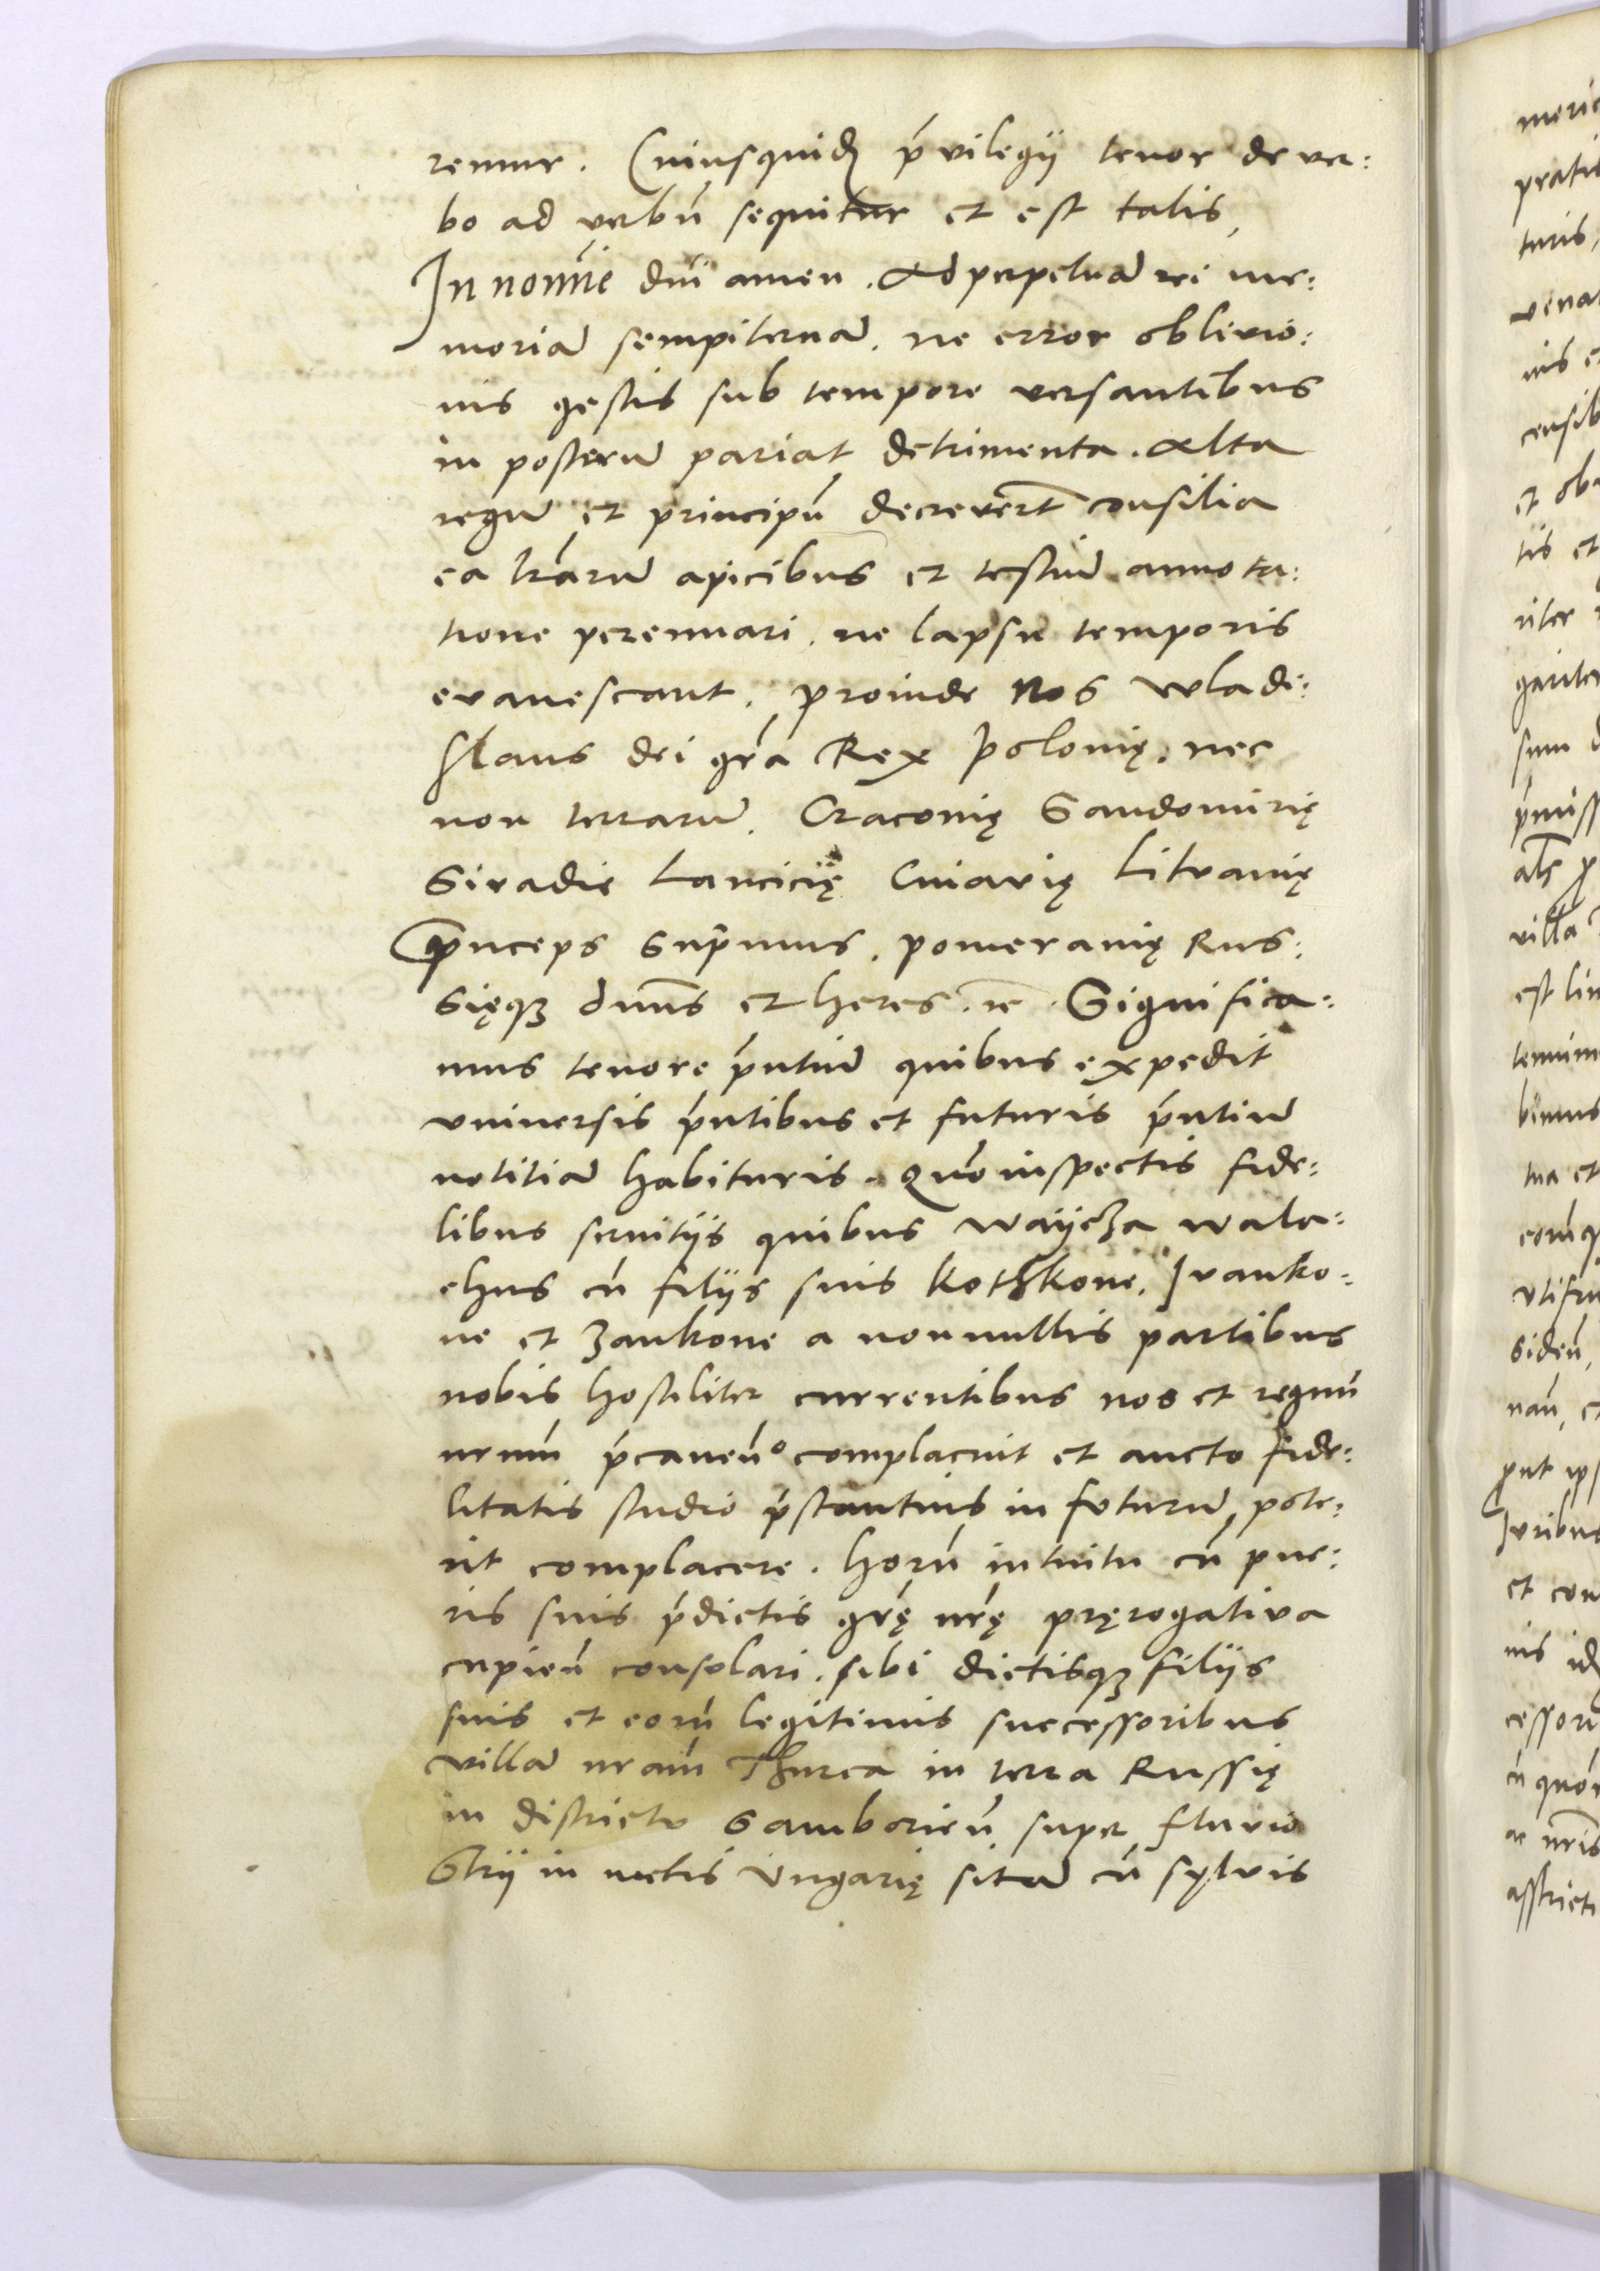 remur. Cuiusquidẽ p̃vilegÿ tenor de ver:
bo ad verbũ sequitur et est talis,
In nomĩe dñi amen. Ad perpetuã rei me:
moriã sempiternã. ne error oblivio:
nis gestis sub tempore versantibus
in posterũ pariat detrimenta. Alta
regũ et principũ decreverũt consilia
ea lr̃arum apicibus et testiũ annota:
tione perennari. ne lapsu temporis
evanescant. proinde Nos Wladi:
slaus dei gr̃a Rex Polonię. nec
non terrarũ. Cracovię Sandomirię
Siradie Lancicię Cuiavię Litvanię
p̃nceps Sup̃mus. pomeranię Rus:
sięq₃ dñus et heres. ꝛc. Significa:
mus tenore p̃ntiũ quibus expedit
vniversis p̃ntibus et futuris p̃ntiũ
notitiã habituris. Quõ inspectis fide:
libus servitÿs quibus Waÿcza wala:
chus cũ filÿs suis Kothkone. Ivanko:
ne et Zankone a nonnullis partibus
nobis hostiliter currentibus nos et regnũ
nr̃um p̃caveñ° complacuit et aucto fide:
litatis studio p̃stantius in futurũ pote:
rit complacere. horũ intuitu cũ pue:
ris suis p̃dictis gr̃ę nr̃ę pręrogativa
cupieñ consolari. sibi dictisq₃ filÿs
suis et eorũ legitimis successoribus
villã nr̃am Thurca in terra Russię
in districtu Samborieñ super fluvio
Strÿ in metis Vngarię sitã cũ sylvis